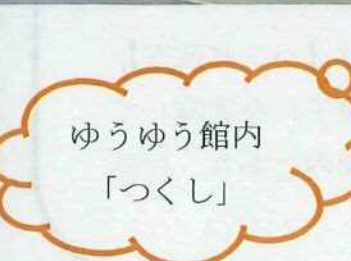 ゆうゆう館内
「つくし」